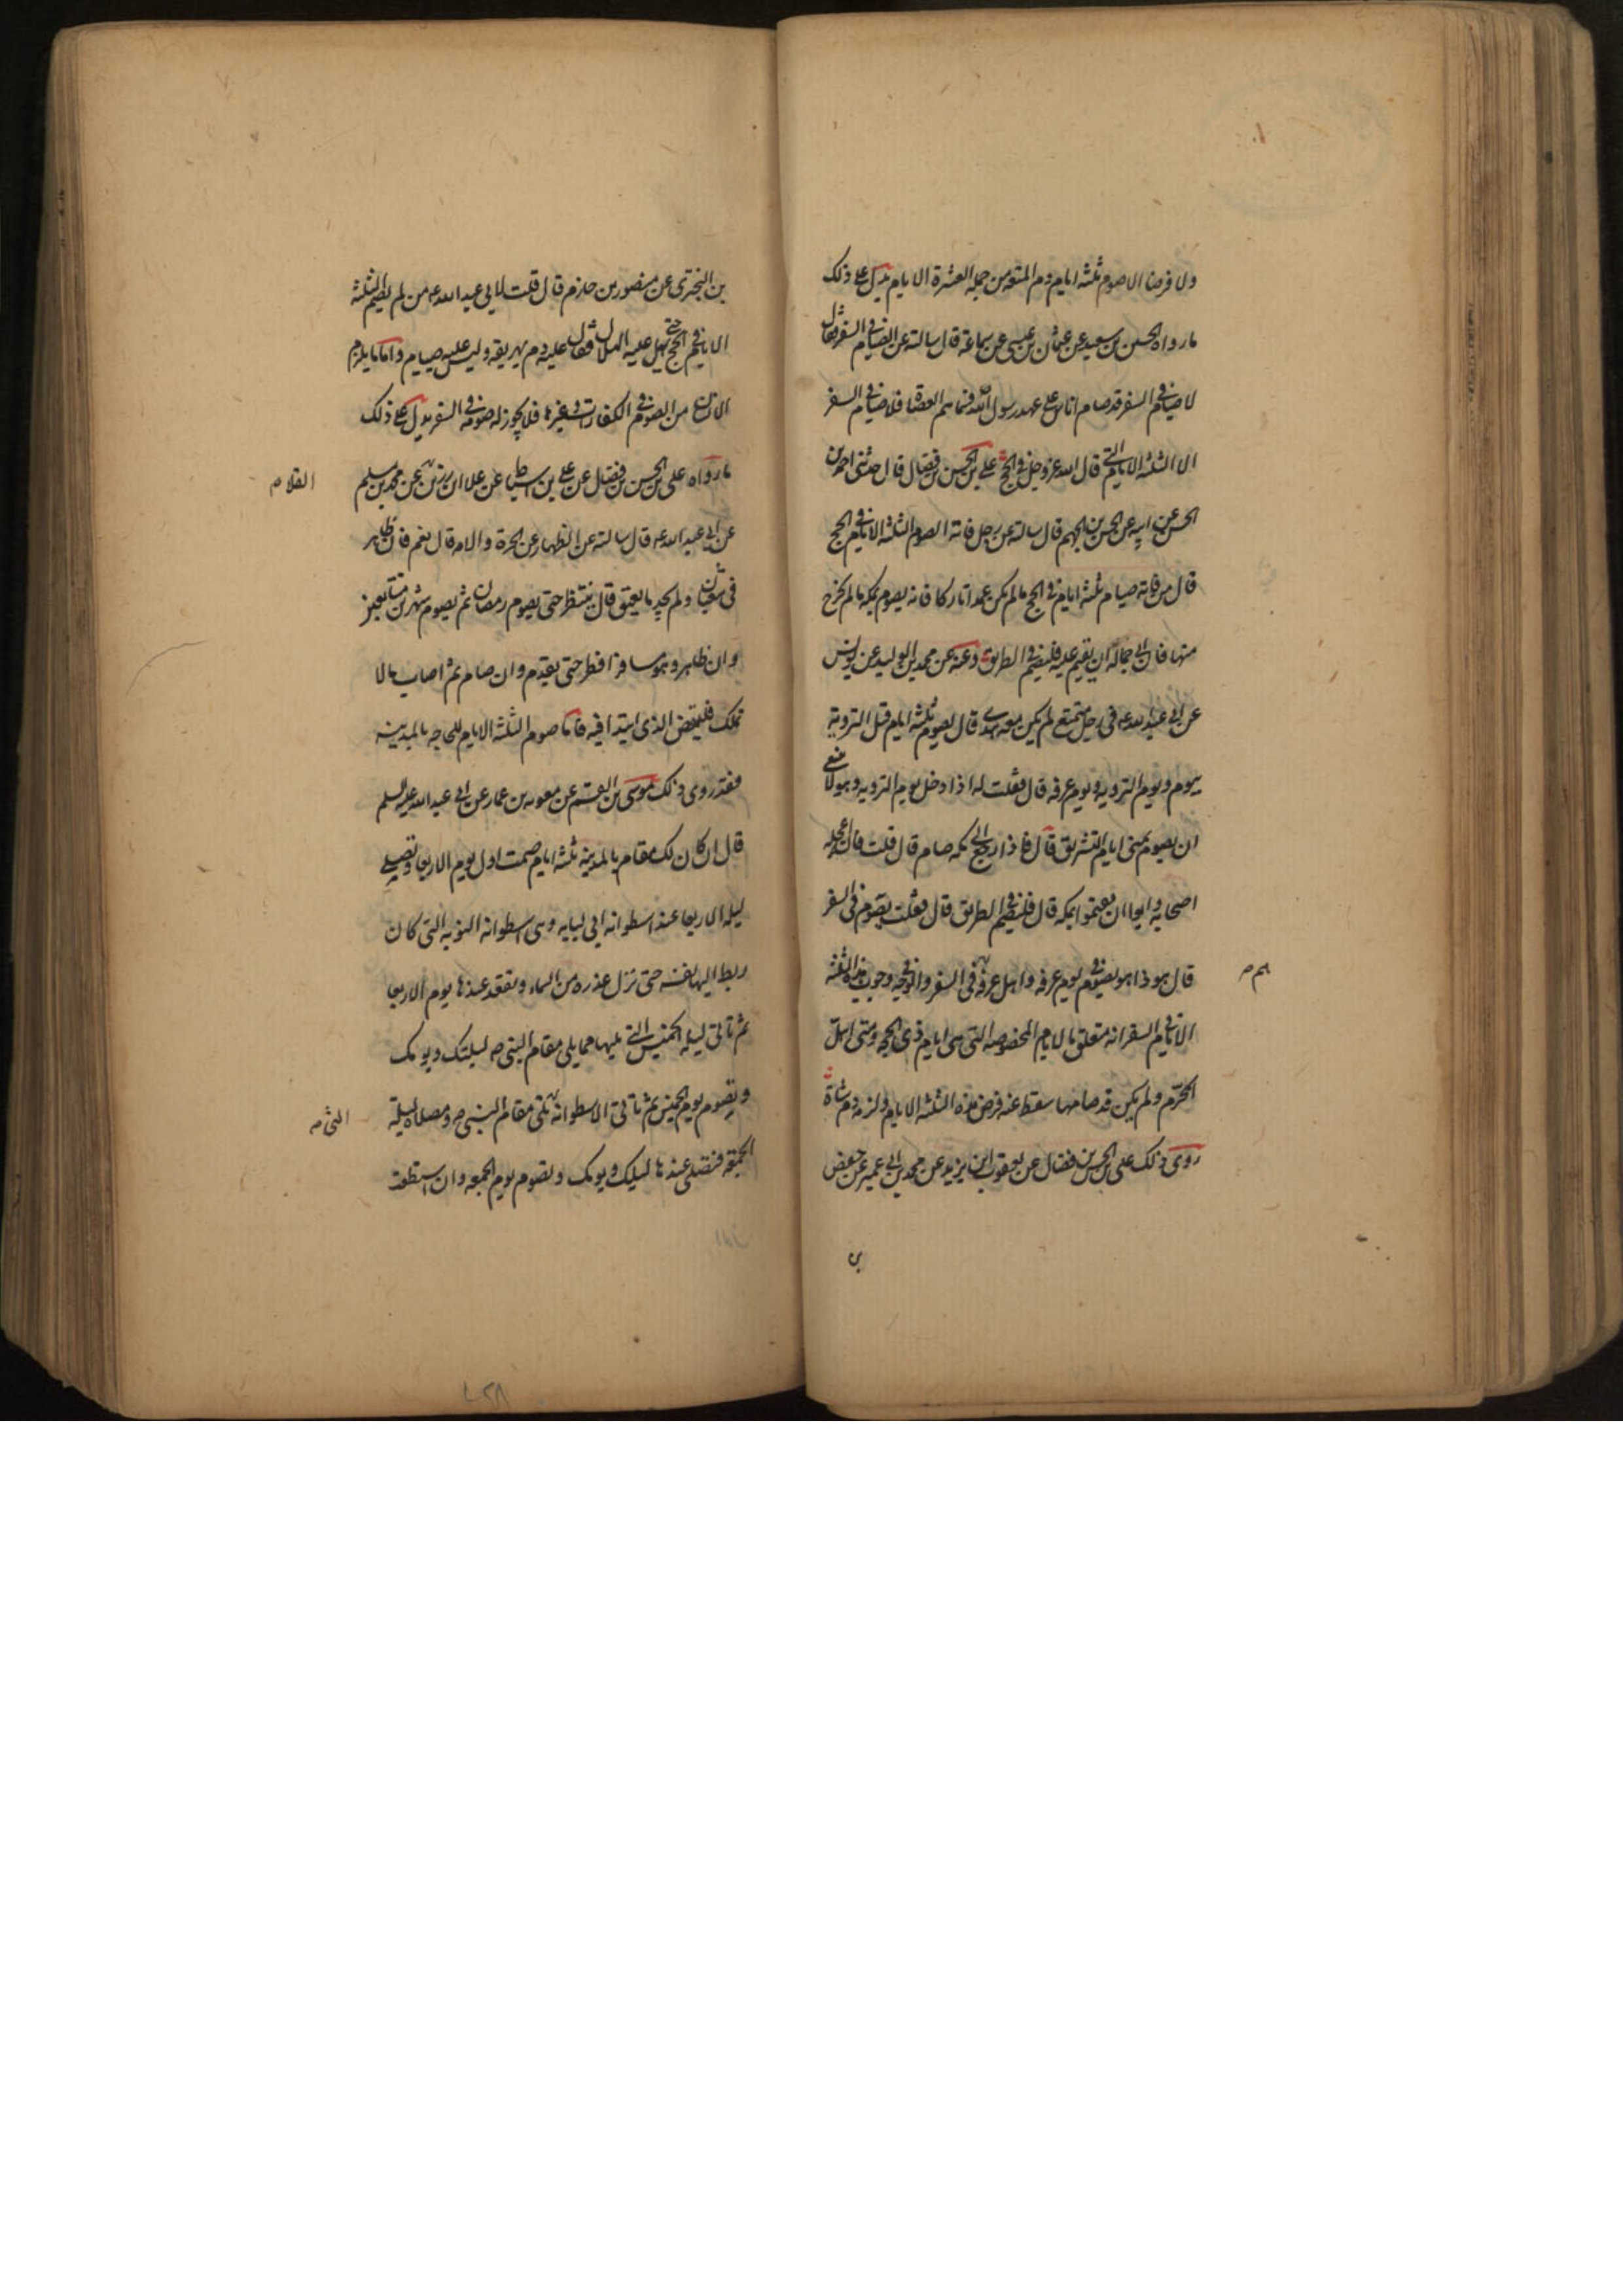 ولا فرضا الا صوم ثلثه ايام دم المتعه من جمله العشرة الايام يدل على ذلك
ما رواه الحسين بن سعيد عن عثمان بن عيسى عن سماعة قال سالته عن الصيام في السفر فقال
لا صيام في السفر قد صام اناس على عهد رسول الله ص فسماهم العصاة فلا صيام في السفر
الا الثلثه الايام التي قال الله عز وجل في الحج علي بن الحسن بن فضال قال حدثني احمد بن
الحسن عن ابيه عن الحسن بن الجهم قال سالته عن رجل فاته الصوم الثلثه الايام في الحج
قال من فاته صيام ثلثه ايام في الحج ما لم يكن عمدا تاركا فانه يصوم بمكه ما لم يخرج
منها فان ابى جماله ان يقيم عليه فليصم في الطريق وعنه عن محمد بن الوليد عن يونس
عن ابي عبد الله ع في رجل متمتع لم يكن معه هدى قال يصوم ثلثه ايام قبل الترويه
بيوم ويوم الترويه ويوم عرفه قال فقلت له اذا دخل يوم الترويه وهو لا ينبغي
ان يصوم بمنى ايام التشريق قال فاذا رجع الى مكه صام قال قلت فان اعجله
اصحابه وابوا ان يقيموا بمكه قال فليصم في الطريق قال فقلت يصوم في السفر
قال هو ذا هو يصوم في يوم عرفه واهل عرفه هم في السفر والوجه وجوب هذه الثلثه
هم ص
الايام في السفر انه متعلق بالايام المخصوصه التي هي ايام ذي الحجه ومتى اهل
المحرم ولم يكن قد صامها سقط عنه فرض هذه الثلثه الايام ولزمه دم شاة
روى ذلك علي بن الحسن بن فضال عن يعقوب ابن يزيد عن محمد بن ابي عمير عن حفص
بن
بن البختري عن منصور بن حازم قال قلت لابي عبد الله ع من لم يصم الثلثه
الايام في الحج حتى يهل عليه الهلال فقال عليه دم يهريقه وليس عليه صيام واما ما يلزم
الانسان من الصوم في الكفارات وغيرها فلا يجوز له صومه في السفر يدل على ذلك
ما رواه علي بن الحسن بن فضال عن علي بن اسباط عن علا بن رزين عن محمد بن مسلم
القلا م
عن ابي عبد الله ع قال سالته عن الظهار عن الحرة والامه قال نعم فان ظاهر
في شعبان ولم يجد ما يعتق قال ينتظر حتى يصوم رمضان ثم يصوم شهرين متتابعين
وان ظاهر وهو مسافر افطر حتى يقدم وان صام ثم اصاب مالا
تملك فليقض الذي ابتدا فيه فاما صوم الثلثه الايام للحاجه بالمدينه
فقد روى ذلك موسى بن القسم عن معويه بن عمار عن ابي عبد الله عليه السلم
قال ان كان لك مقام بالمدينه ثلثه ايام صمت اول يوم الاربعا وتصلي
ليله الاربعا عند اسطوانه ابي لبابه وهى اسطوانه التوبه التي كان
ربط اليها نفسه حتى نزل عذره من السماء وتقعد عندها يوم الاربعا
ثم تاتي ليله الخميس التي يليها مما يلي مقام النبي ص ليلتك ويومك
وتصوم يوم الخميس ثم تاتي الاسطوانه تلي مقام النبي ص ومصلاه ليلة
التي م
الجمعه فتصلي عندها ليلتك ويومك وتصوم يوم الجمعه وان استطعت